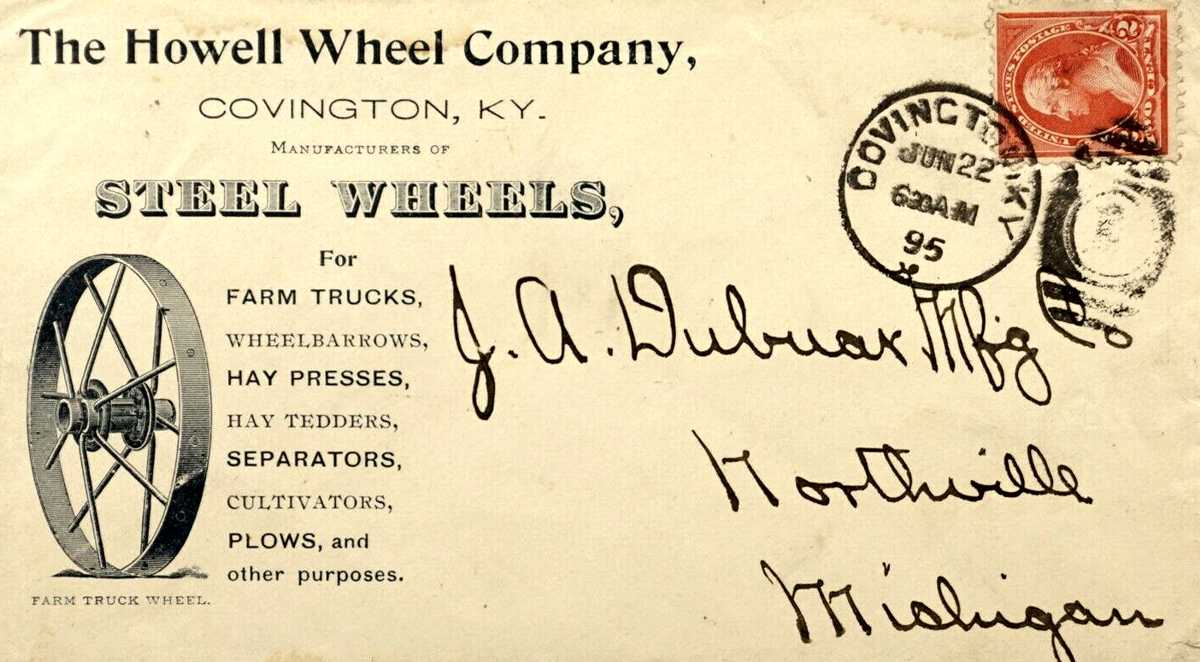 The Howell Wheel Company,
COVINGTON, KY.
MANUFACTURERS OF
STEEL WHEELS,
For
FARM TRUCKS,
WHEELBARROWS,
HAY PRESSES,
HAY TEDDERS,
SEPARATORS,
CULTIVATORS,
PLOWS, and
other purposes.
FARM TRUCK WHEEL.
COVINGTON, KY.
JUN 22
630AM
95
UNITED STATES POSTAGE
2
TWO CENTS
J. A. Dubuar Mfg Co
Northville
Michigan